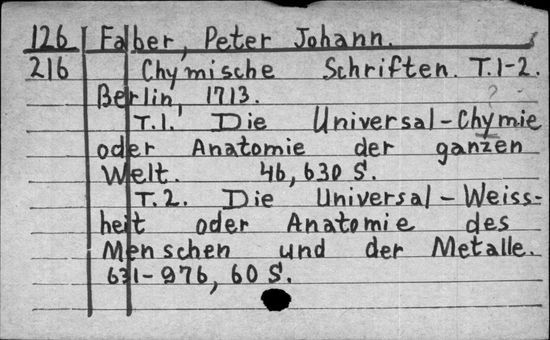 126 Faber, Peter Johann.
216 Chymische Schriften. T.1-2.
Berlin, 1713. ?
T.1. Die Universal-Chymie
oder Anatomie der ganzen
Welt. 46, 630 S.
T.2. Die Universal-Weiss-
heit oder Anatomie des
Menschen und der Metalle.
631-976, 60 S.